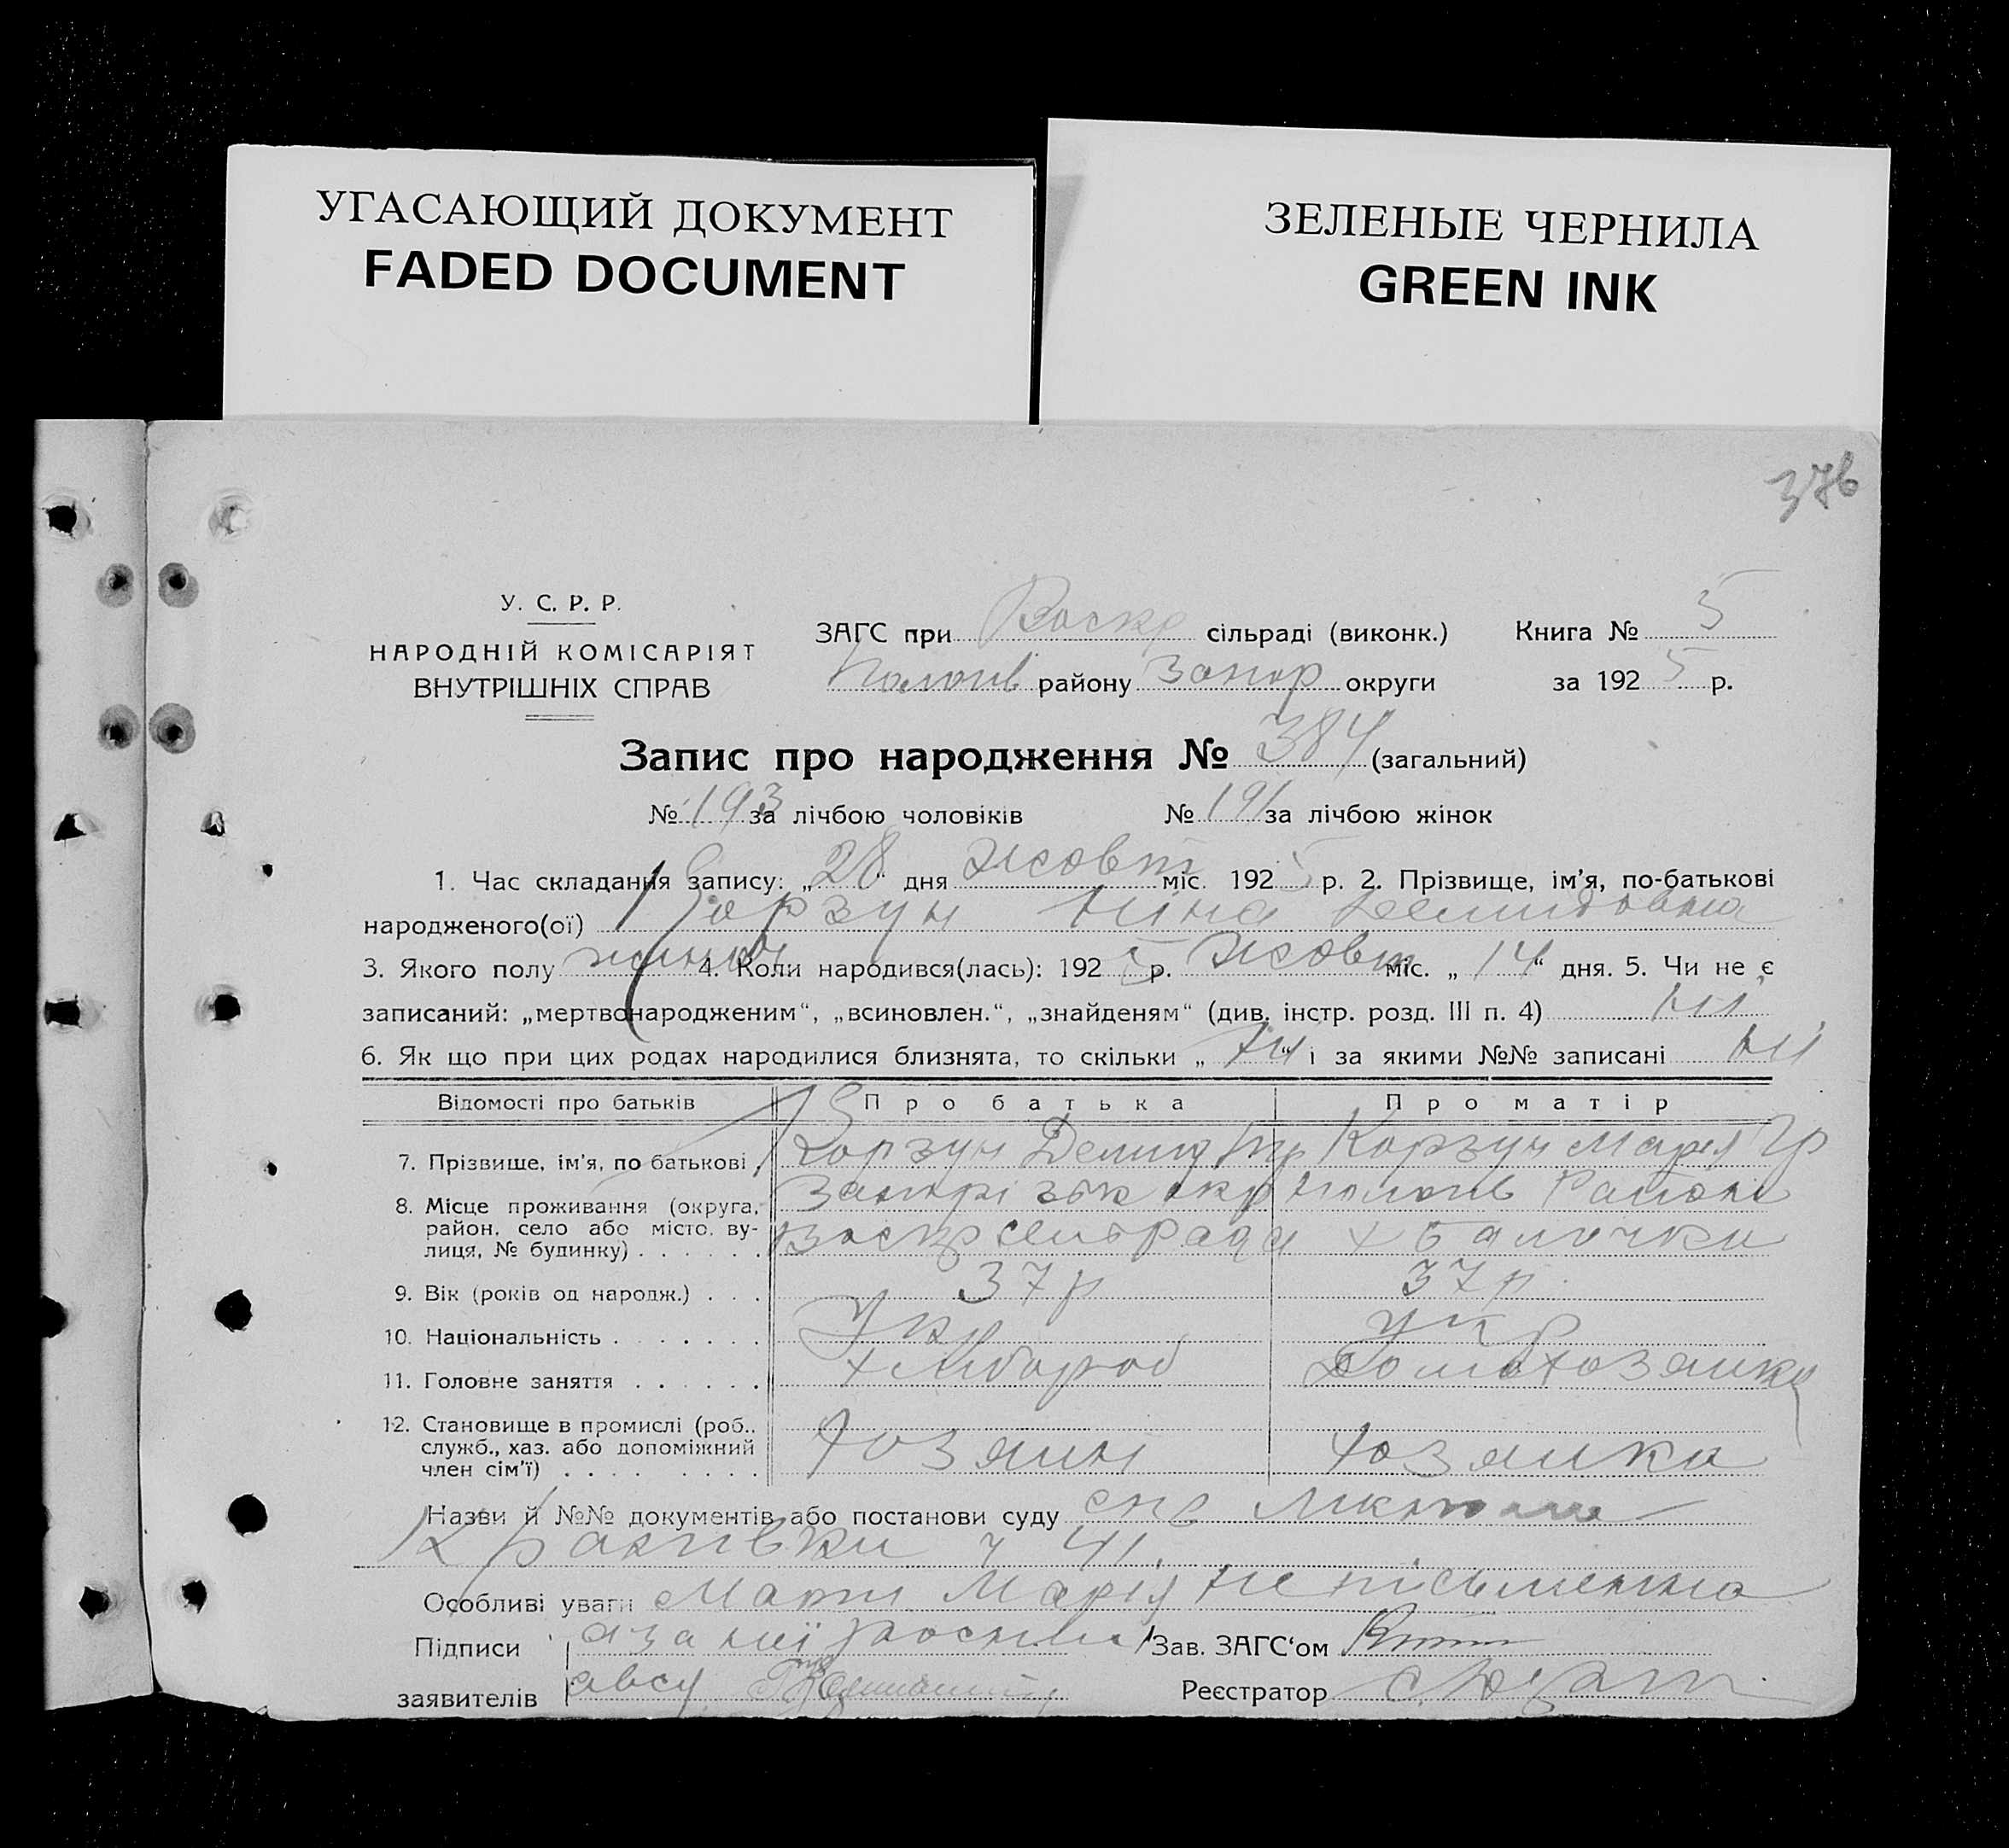 УГАСАЮЩИЙ ДОКУМЕНТ
FADED DOCUMENT
ЗЕЛЕНЫЕ ЧЕРНИЛА
GREEN INK
376
У. С. Р. Р.
НАРОДНІЙ КОМІСАРІЯТ
ВНУТРІШНІХ СПРАВ
ЗАГС при Воскр сільраді (виконк.) Книга № 5
Пологів району Запор округи за 1925 р.
Запис про народження № 384 (загальний)
№ 193 за лічбою чоловіків № 191 за лічбою жінок
1. Час складання запису: „28“ дня жовт міс. 1925 р. 2. Прізвище, ім'я, по-батькові
народженого(ої) Корзун Ніна Демидовна
3. Якого полу жіноч 4. Коли народився(лась): 1925 р. жовт міс. „14“ дня. 5. Чи не є
записаний: „мертвонародженим“, „всиновлен.“, „знайденям“ (див. інстр. розд. III п. 4) ні
6. Як що при цих родах народилися близнята, то скільки „ні“ і за якими №№ записані ні
Відомості про батьків Про батька Про матір
7. Прізвище, ім'я, по батькові Корзун Демид Корзун Марія Гр
8. Місце проживання (округа, район, село або місто, вулиця, № будинку) Запорізьк окр Пологів Району
Воскр сельрада х Балочки
9. Вік (років од народж.) 37 р 37 р.
10. Національність Укр Укр
11. Головне заняття хлібороб домохозяйка
12. Становище в промислі (роб., служб., хаз. або допоміжний член сім'ї) хозяин хозяйка
Назви й №№ документів або постанови суду
ч 41.
Особливі уваги Мати Марія не письменна
Підписи а за неї росписа Зав. ЗАГС'ом
заявителів авсу Реєстратор